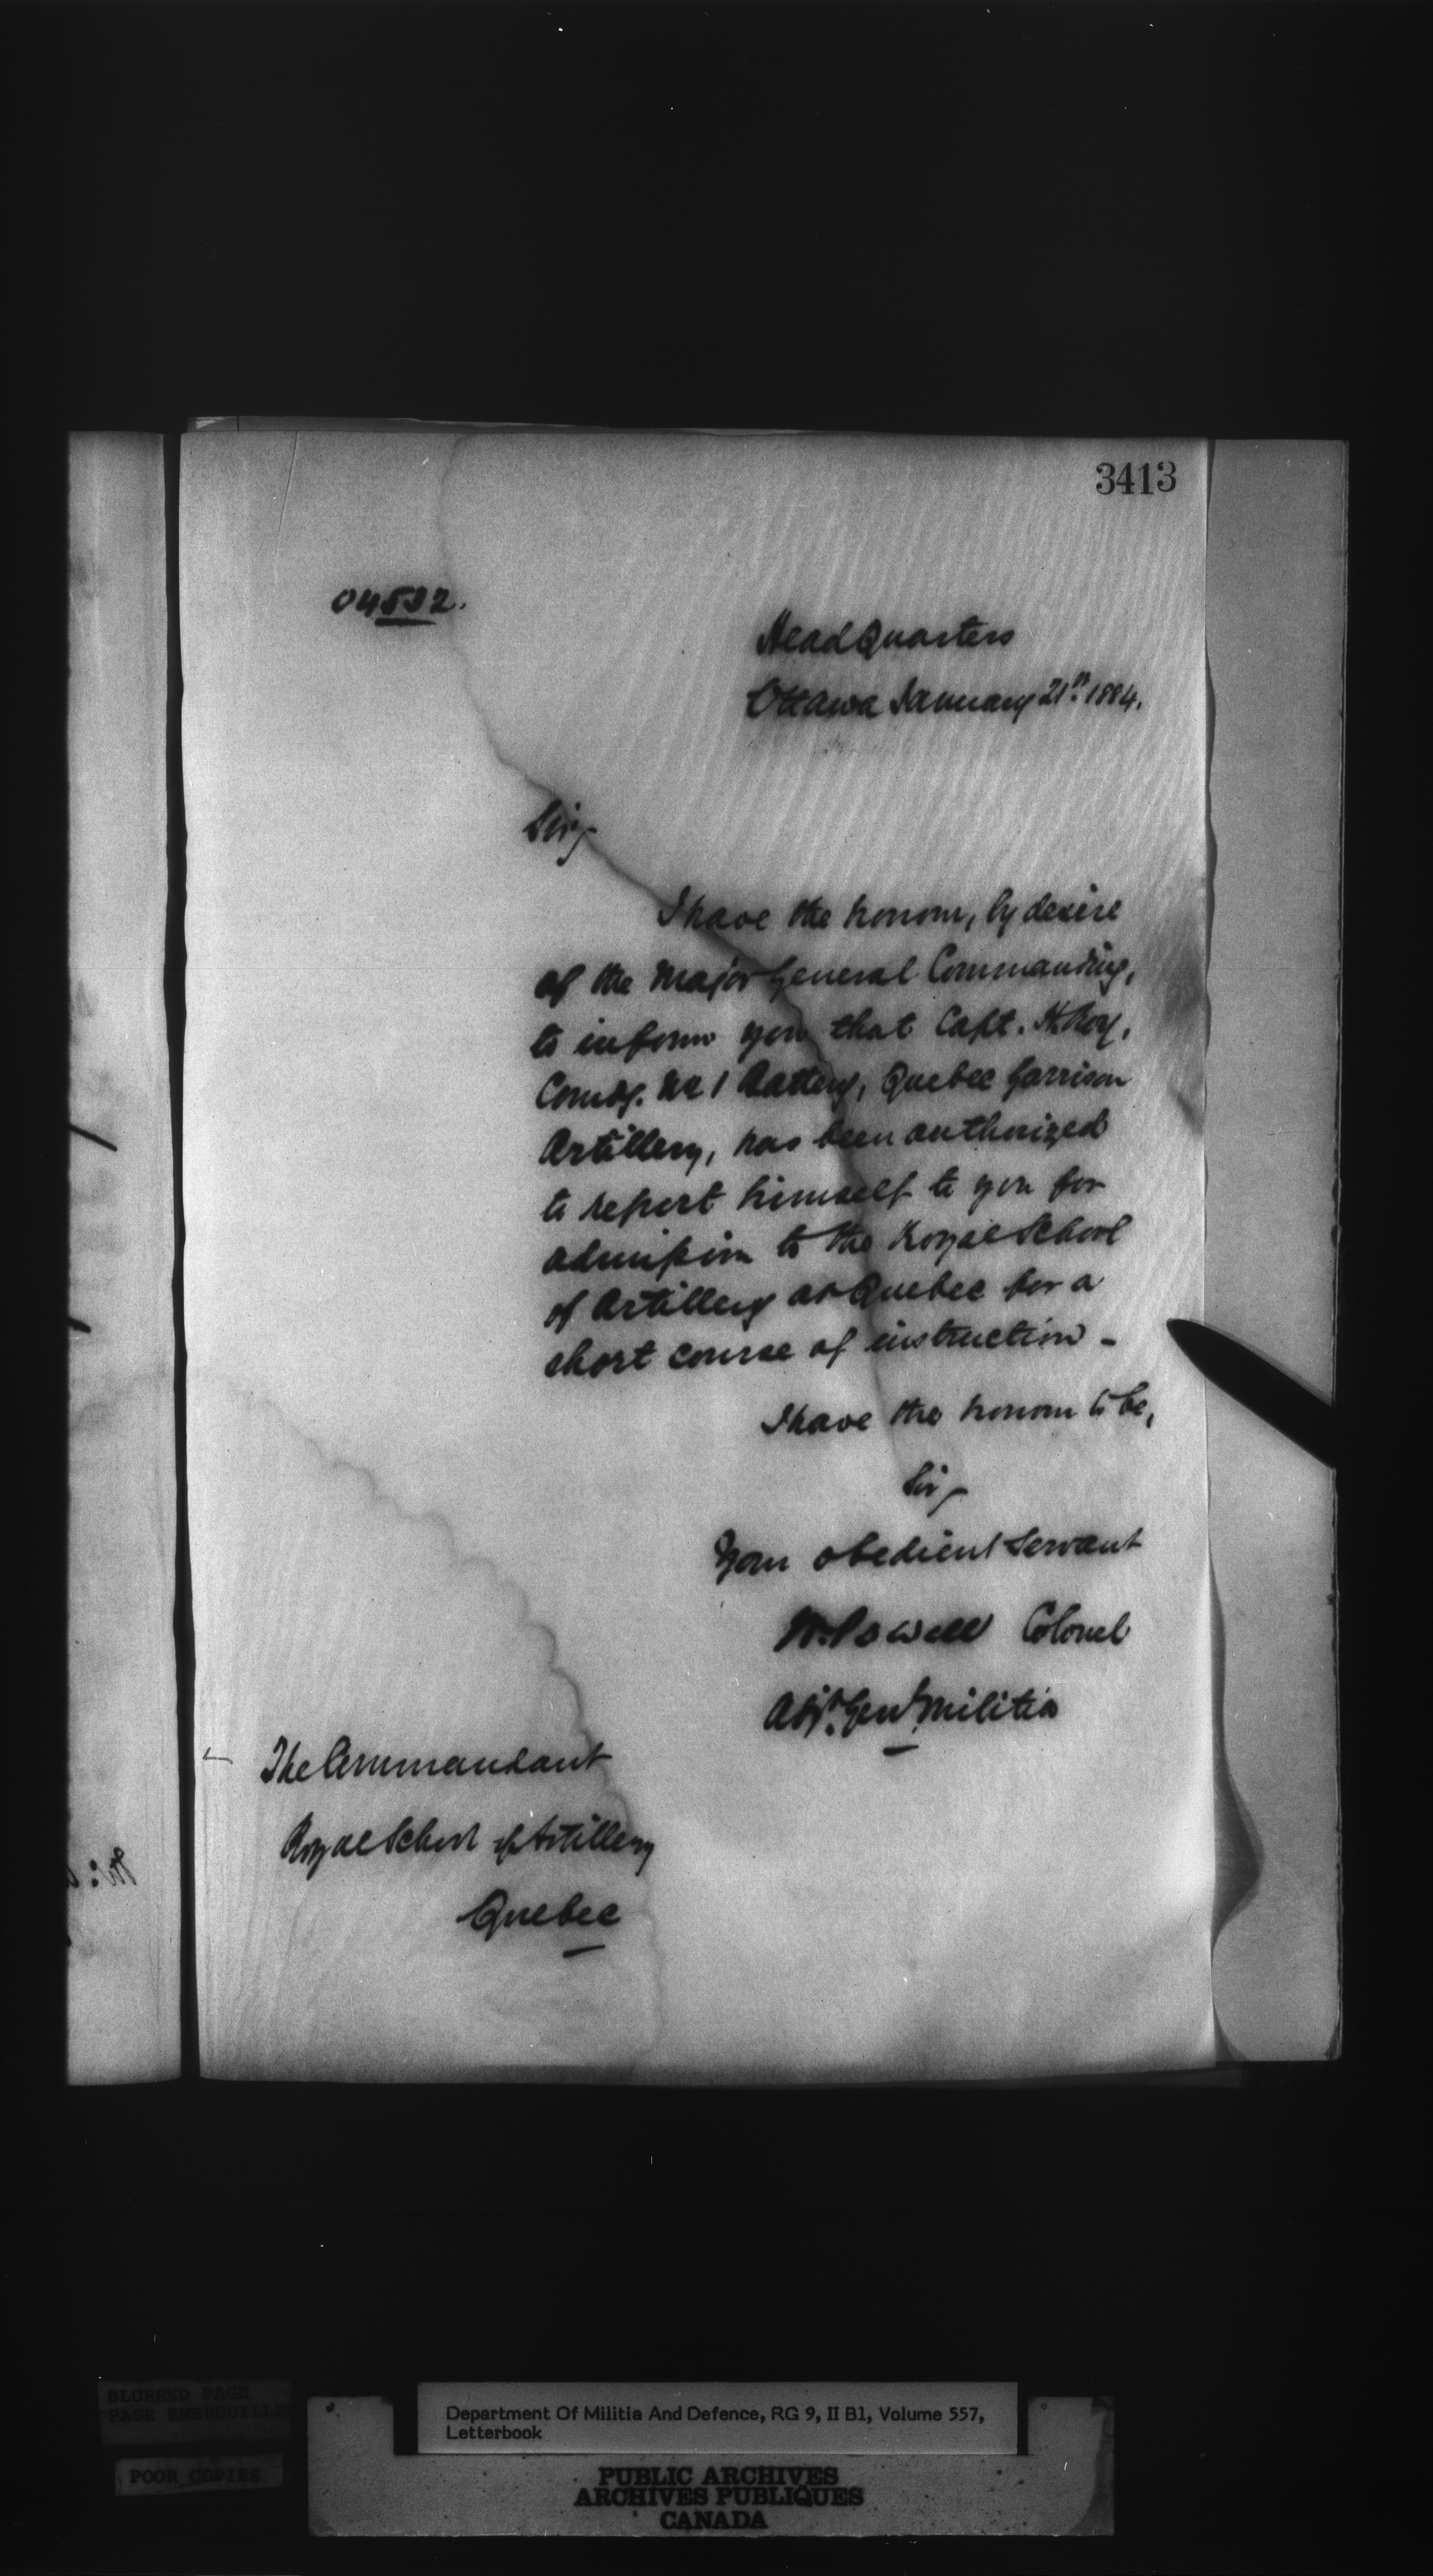 3413
04532.
HeadQuarters
Ottawa January 21st. 1884.
Sir,
I have the honour, by desire
of the Major General Commanding,
to inform you that Capt. H. Roy,
Comdg. No 1 Battery, Quebec Garrison
Artillery, has been authorized
to report himself to you for
admission to the Royal School
of Artillery at Quebec for a
short course of instruction -
I have the honour to be,
Sir,
Your obedient Servant
W. Powell Colonel
Adjt. Genl. Militia
The Commandant
Royal School of Artillery
Quebec
BLURRED PAGE
PAGE EMBROUILLEE
POOR COPIES
Department Of Militia And Defence, RG 9, II B1, Volume 557,
Letterbook
PUBLIC ARCHIVES
ARCHIVES PUBLIQUES
CANADA